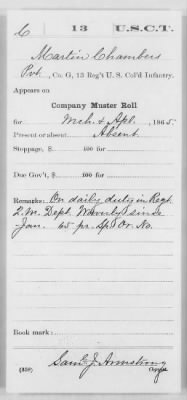 C 13 U.S.C.T.
Martin Chambers
Pvt., Co. G, 13 Reg't U. S. Col'd Infantry.
Appears on
Company Muster Roll
for Mch & Apl., 1865
Present or absent Absent
Stoppage, $ 100 for
Due Gov't, $ 100 for
Remarks: On daily duty in Regt.
Q.M. Dept. Waverly since
Jan. 65 pr. Sp. Or. No.
Book mark:
Saml. J. Armstrong
(358) Copyist.